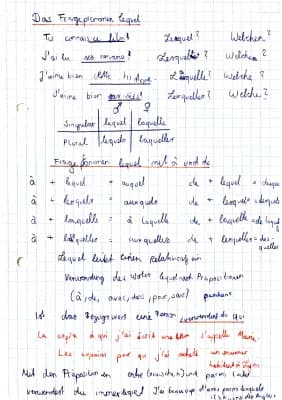 Das Fragepronomen lequel
Tu connais ce film? Lequel? Welchen?
J'ai lu ces romans! Lesquels? Welche?
J'aime bien cette Laquelle? Welche?
J'aime bien Lesquelles? Welche?
♂ ♀
Singular lequel laquelle
Plural lesquels lesquelles
Fragepronomen lequel mit à und de
à + lequel = auquel de + lequel = duquel
à + lesquels = auxquels de + lesquels = desquels
à + laquelle = à laquelle de + laquelle = de laquelle
à + lesquelles = auxquelles de + lesquelles = des-
quelles
Lequel leitet einen Relativsatz ein
Verwendung des Wortes lequel nach Präpositionen
(à, de, avec, dans, pour, sur) pendant
Ist das Bezugswort eine Person verwendet du qui
La copine à qui j'ai écrit une lettre s'appelle Marie.
Les copains pour qui j'ai acheté un
habitent à
Mit den Präpositionen entre (zwischen) und parmi
verwendest du immer lequel J'ai beaucoup d'amis parmi lesquels